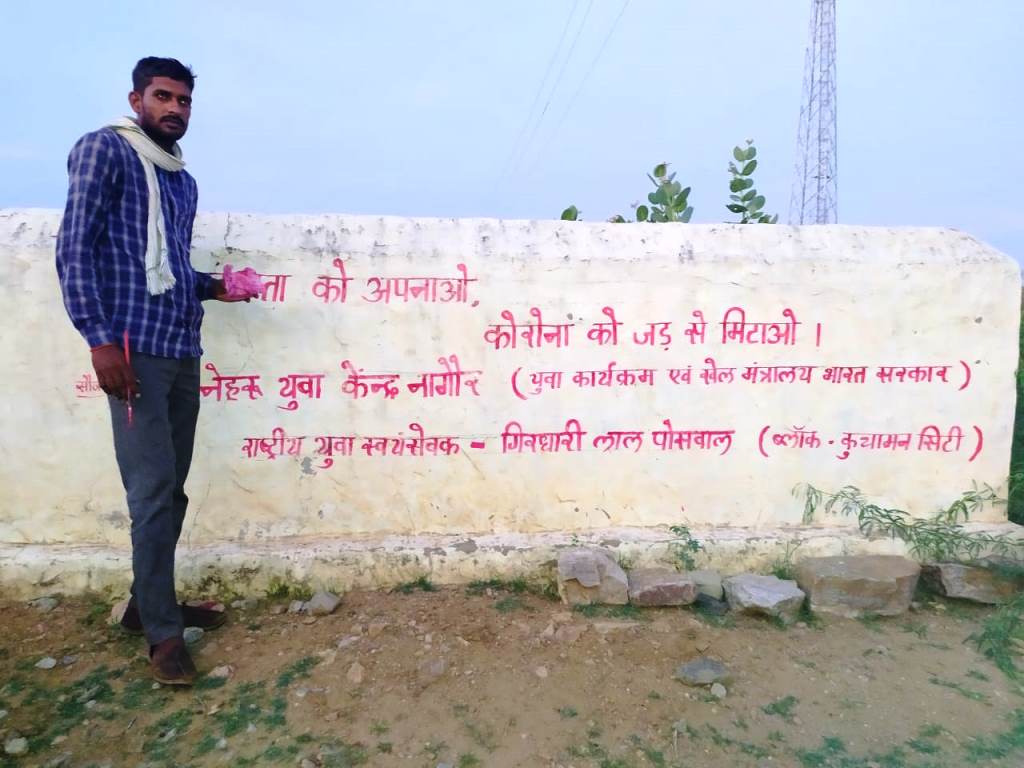 को अपनाओ,
कोरोना को जड़ से मिटाओ ।
नेहरू युवा केन्द्र नागौर (युवा कार्यक्रम एवं खेल मंत्रालय भारत सरकार)
राष्ट्रीय युवा स्वयंसेवक - गिरधारी लाल पोसवाल (ब्लॉक - कुचामन सिटी)